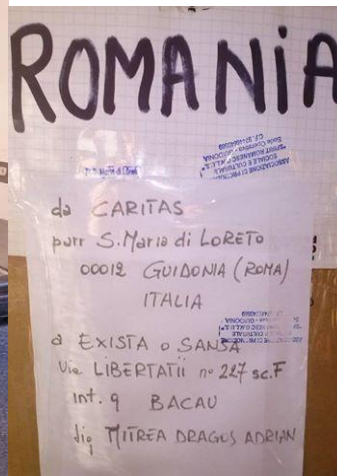 ROMANIA
da CARITAS
parr S. Maria di LORETO
00012 GUIDONIA (ROMA)
ITALIA
a EXISTA o SANSA
Via LIBERTATII nº 227 sc.F
int. 9 BACAU
sig MITREA DRAGOS ADRIAN